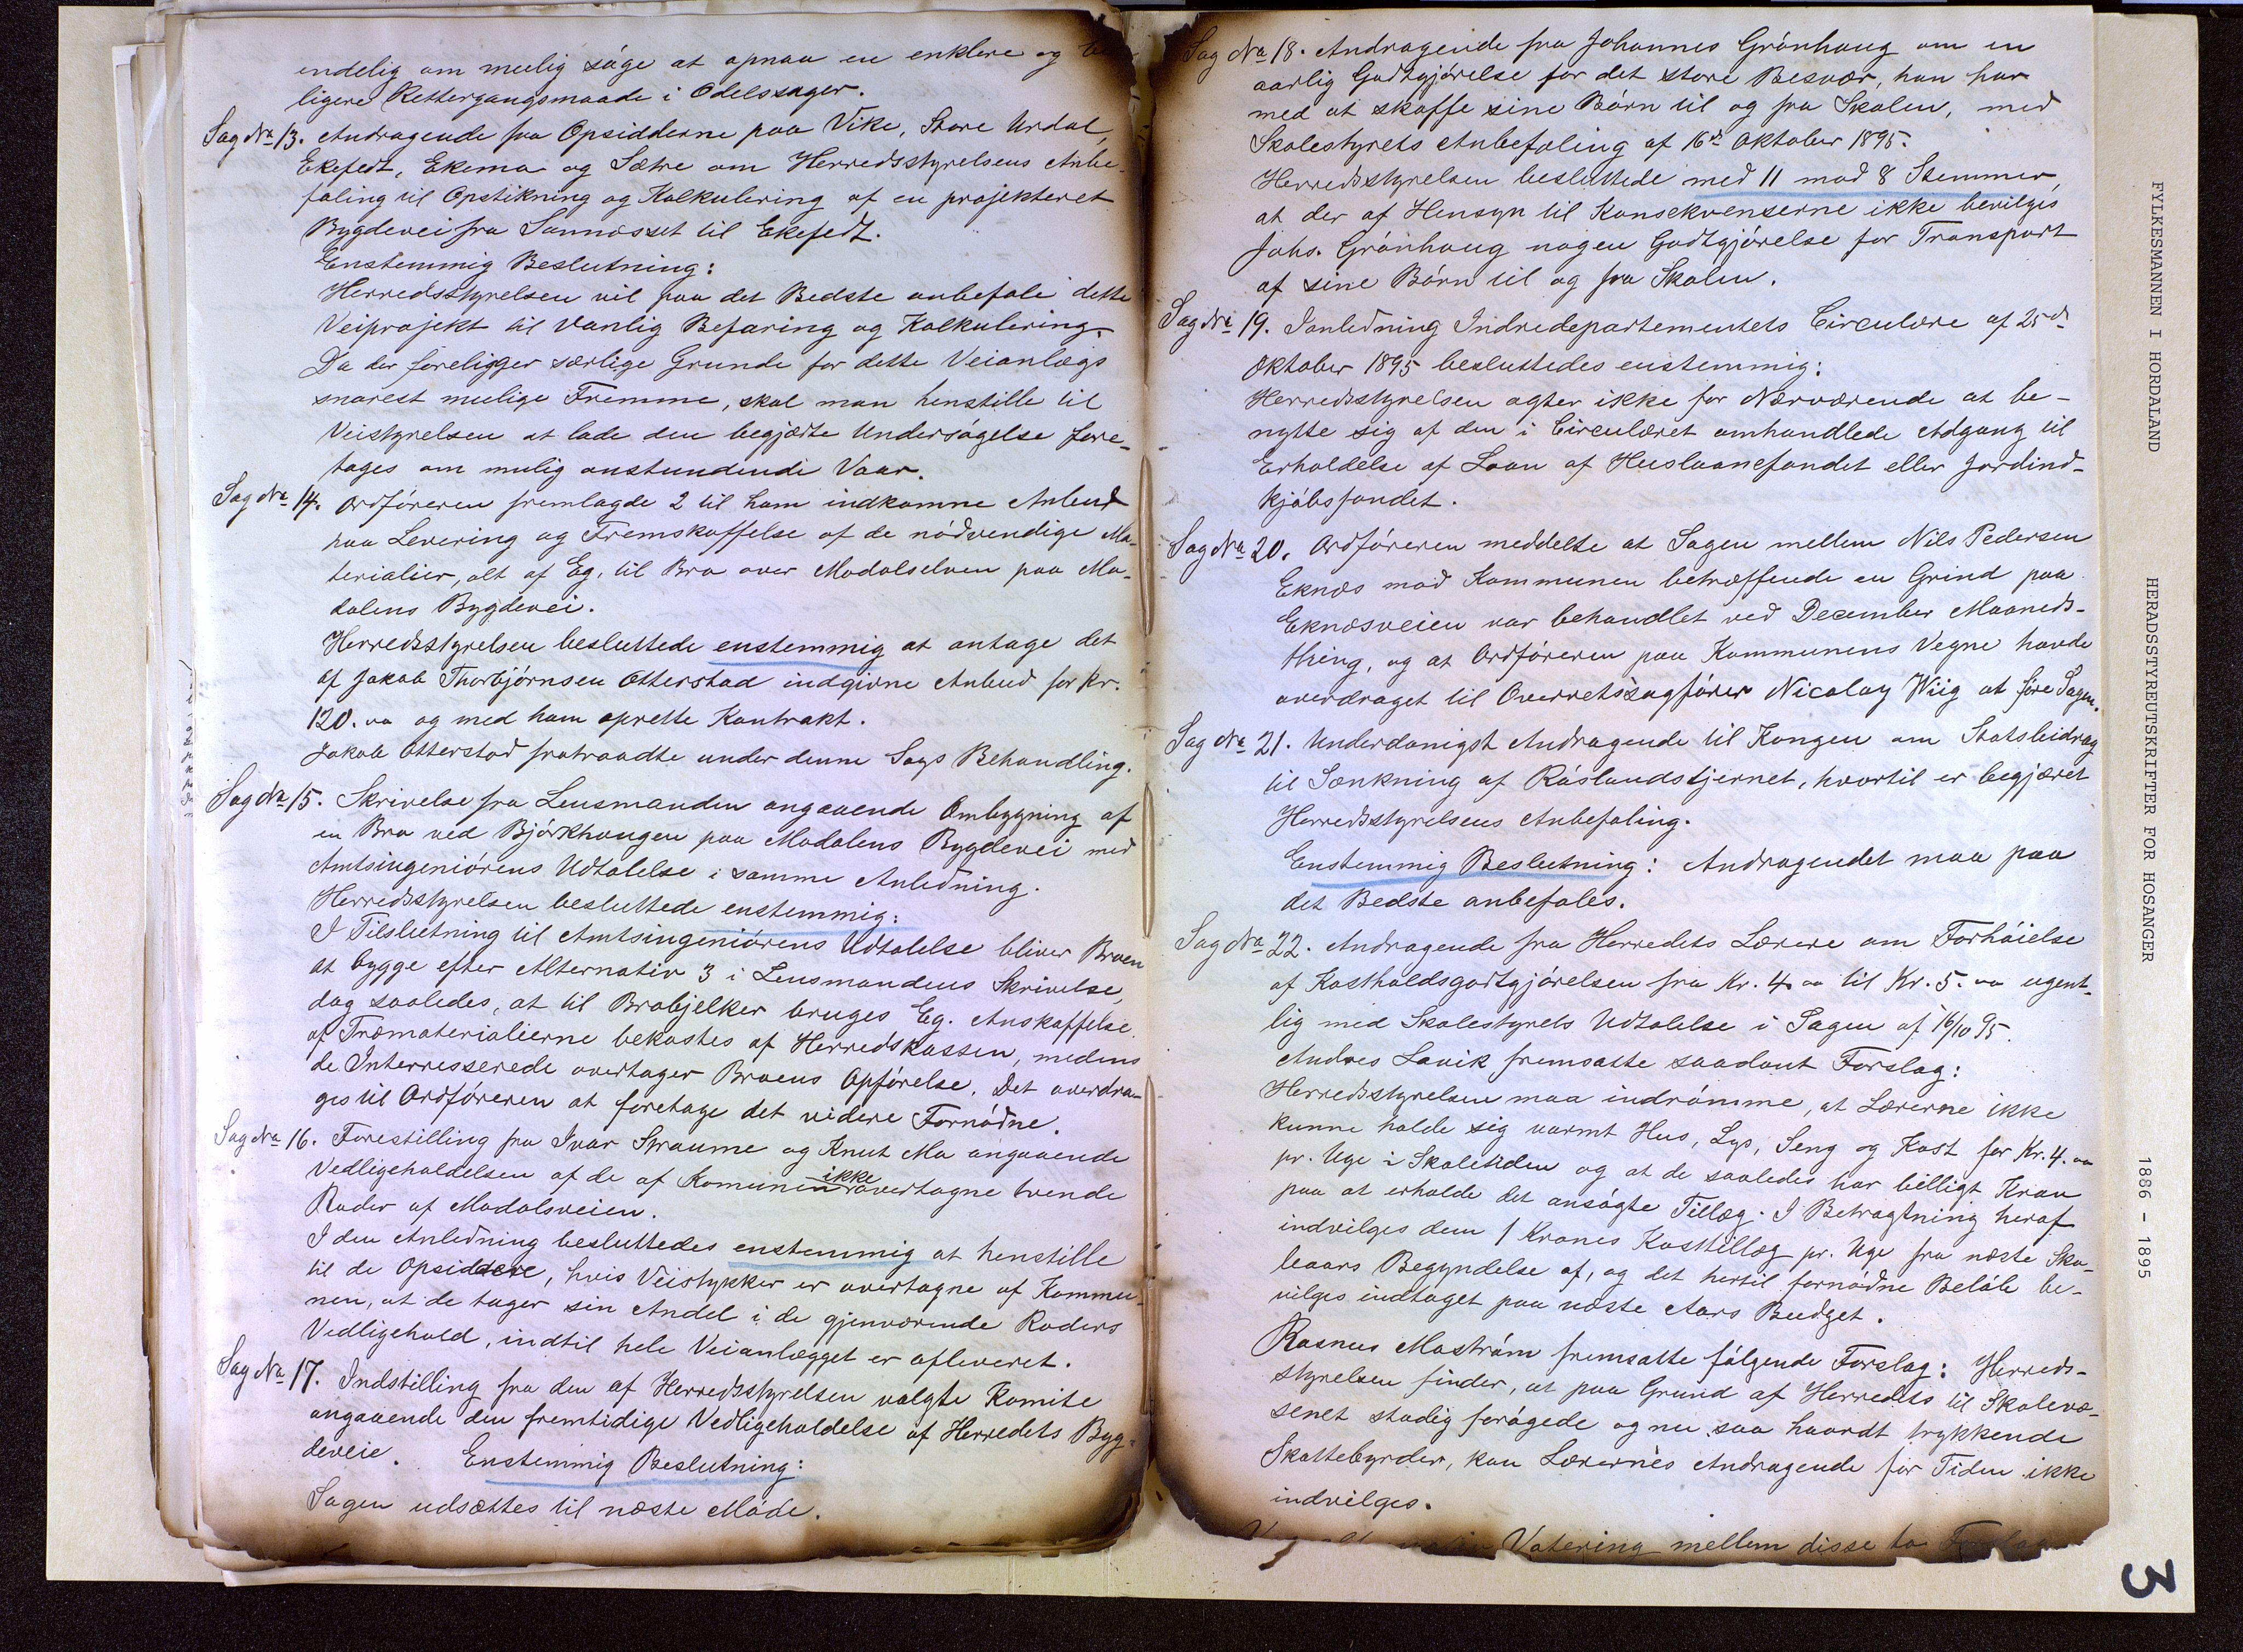 endelig om mulig søge at opnaa en enklere og
ligere Rettergangsmaade i Odelssager.
Sag No 13. Andragende fra Opsidderne paa Vike, Store Urdal,
Ekefedt, Ekemo og Sætre om Herredsstyrelsens Anbe-
faling til Opstikning og Kalkulering af en projekteret
Bygdevei fra Sannosset til Ekefedt.
Enstemmig Beslutning:
Herredsstyrelsen vil paa det Bedste anbefale dette
Veiprojekt til vanlig Befaring og Kalkulering.
Da der foreligger særlige Grunde for dette Veianlægs
snarest mulige Fremme, skal man henstille til
Veistyrelsen at lade den begjærte Undersøgelse fore-
tages om mulig anstundende Vaar.
Sag No 14. Ordføreren fremlagde 2 til ham indkomne Anbud
paa Levering og Fremskaffelse af de nødvendige Ma-
terialier, alt af Eg, til Bro over Modalselven paa Mo-
dalens Bygdevei.
Herredsstyrelsen besluttede enstemmig at antage det
af Jakob Thorbjørnsen Otterstad indgivne Anbud for Kr.
120.oo og med ham oprette Kontrakt.
Jakob Otterstad fratraadte under denne Sags Behandling.
Sag No 15. Skrivelse fra Lensmanden angaaende Ombygning af
en Bro ved Bjørkhaugen paa Modalens Bygdevei med
Amtsingeniørens Udtalelse i samme Anledning.
Herredsstyrelsen besluttede enstemmig:
I Tilslutning til Amtsingeniørens Udtalelse bliver Broen
at bygge efter Alternativ 3 i Lensmandens Skrivelse,
dog saaledes, at til Brobjelker bruges Eg. Anskaffelse
af Træmaterialierne bekostes af Herredskassen, medens
de Interresserede overtager Broens Opførelse. Det overdra-
ges til Ordføreren at foretage det videre Fornødne.
Sag No 16. Forestilling fra Ivar Straume og Knut Mo angaaende
Vedligeholdelsen af de af Komunen ikke overtagne tvende
Roder af Modalsveien.
I den Anledning besluttedes enstemmig at henstille
til de Opsiddere, hvis Veistykker er overtagne af Kommu-
nen, at de tager sin Andel i de gjenværende Roders
Vedligehold, indtil hele Veianlægget er afleveret.
Sag No 17. Indstilling fra den af Herredsstyrelsen valgte Komite
angaaende den fremtidige Vedligeholdelse af Herredets Byg-
deveie. Enstemmig Beslutning:
Sagen udsættes til næste Møde.
Sag No 18. Andragende fra Johannes Grønhaug om en
aarlig Godtgjørelse for det store Besvær, han har
med at skaffe sine Børn til og fra Skolen, med
Skolestyrets Anbefaling af 16de Oktober 1895.
Herredsstyrelsen besluttede med 11 mod 8 Stemmer,
at der af Hensyn til Konsekvenserne ikke bevilges
Johs. Grønhaug nogen Godtgjørelse for Transport
af sine Børn til og fra Skolen.
Sag No 19. Ianledning Indredepartementets Circulære af 25de
Oktober 1895 besluttedes enstemmig:
Herredsstyrelsen agter ikke for Nærværende at be-
nytte sig af den i Circulæret omhandlede Adgang til
Erholdelse af Laan af Huslaanefondet eller Jordind-
kjøbsfondet.
Sag No 20. Ordføreren meddelte at Sagen mellem Nils Pedersen
Eknæs mod Kommunen betræffende en Grind paa
Eknæsveien var behandlet ved December Maaneds-
thing, og at Ordføreren paa Kommunens Vegne havde
overdraget til Overretssagfører Nicolay Wiig at føre Sagen.
Sag No 21. Underdanigst Andragende til Kongen om Statsbidrag
til Sænkning af Råslandstjernet, hvortil er begjæret
Herredsstyrelsens Anbefaling.
Enstemmig Beslutning: Andragendet maa paa
det Bedste anbefales.
Sag No 22. Andragende fra Herredets Lærere om Forhøielse
af Kostholdsgodtgjørelsen fra Kr. 4.oo til Kr. 5.oo ugent-
lig med Skolestyrets Udtalelse i Sagen af 16/10 95.
Andres Lavik fremsatte saadant Forslag:
Herredsstyrelsen maa indrømme, at Lærerne ikke
kunne holde sig varmt Hus, Lys, Seng og Kost for Kr. 4.oo
pr. Uge i Skoletiden og at de saaledes har billigt Krav
paa at erholde det ansøgte Tillæg. I Betragtning heraf
indvilges dem 1 Krones Kosttillæg pr. Uge fra næste Sko-
leaars Begyndelse af, og det hertil fornødne Beløb be-
vilges indtaget paa næste Aars Budget.
Rasmus Mostrøm fremsatte følgende Forslag: Herreds-
styrelsen finder, at paa Grund af Herredets til Skolevæ-
senet stadig forøgede og nu saa haardt trykkende
Skattebyrder, kan Lærernes Andragende for Tiden ikke
indvilges.
Votering mellem disse to Forslag
FYLKESMANNEN I HORDALAND
HERADSSTYREUTSKRIFTER FOR HOSANGER
1886 - 1895
3